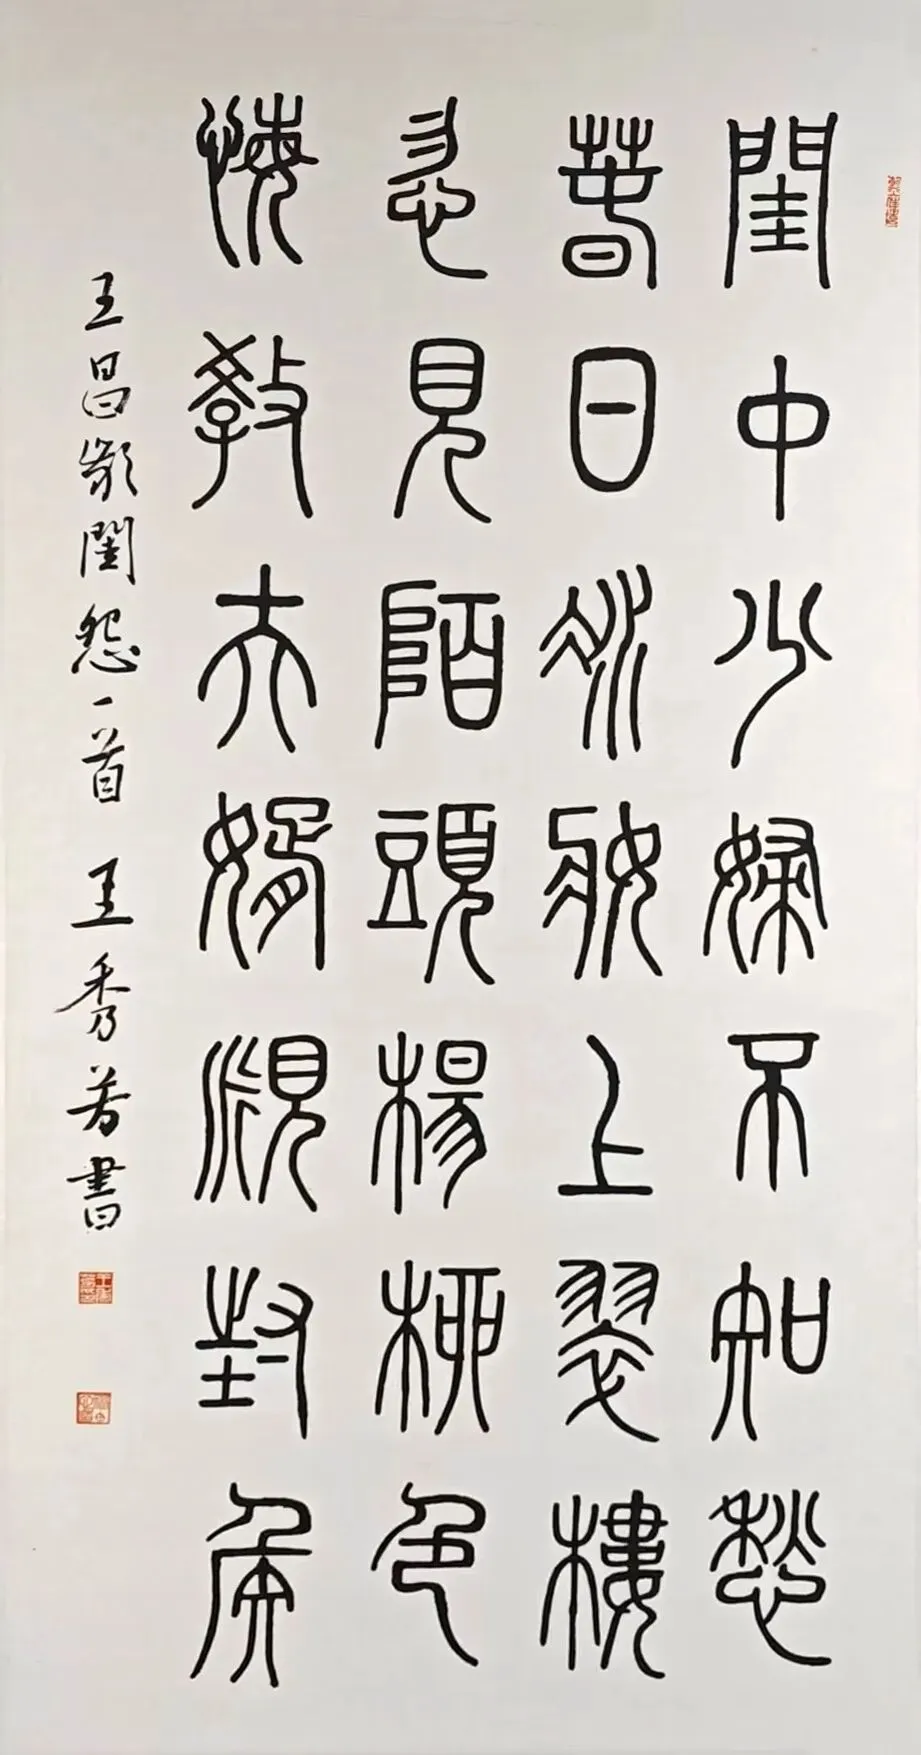 閨中少婦不知愁
春日冰妝上翠樓
忽見陌頭楊柳色
悔教夫婿覛封侯
王昌齡閨怨一首 王秀芳書